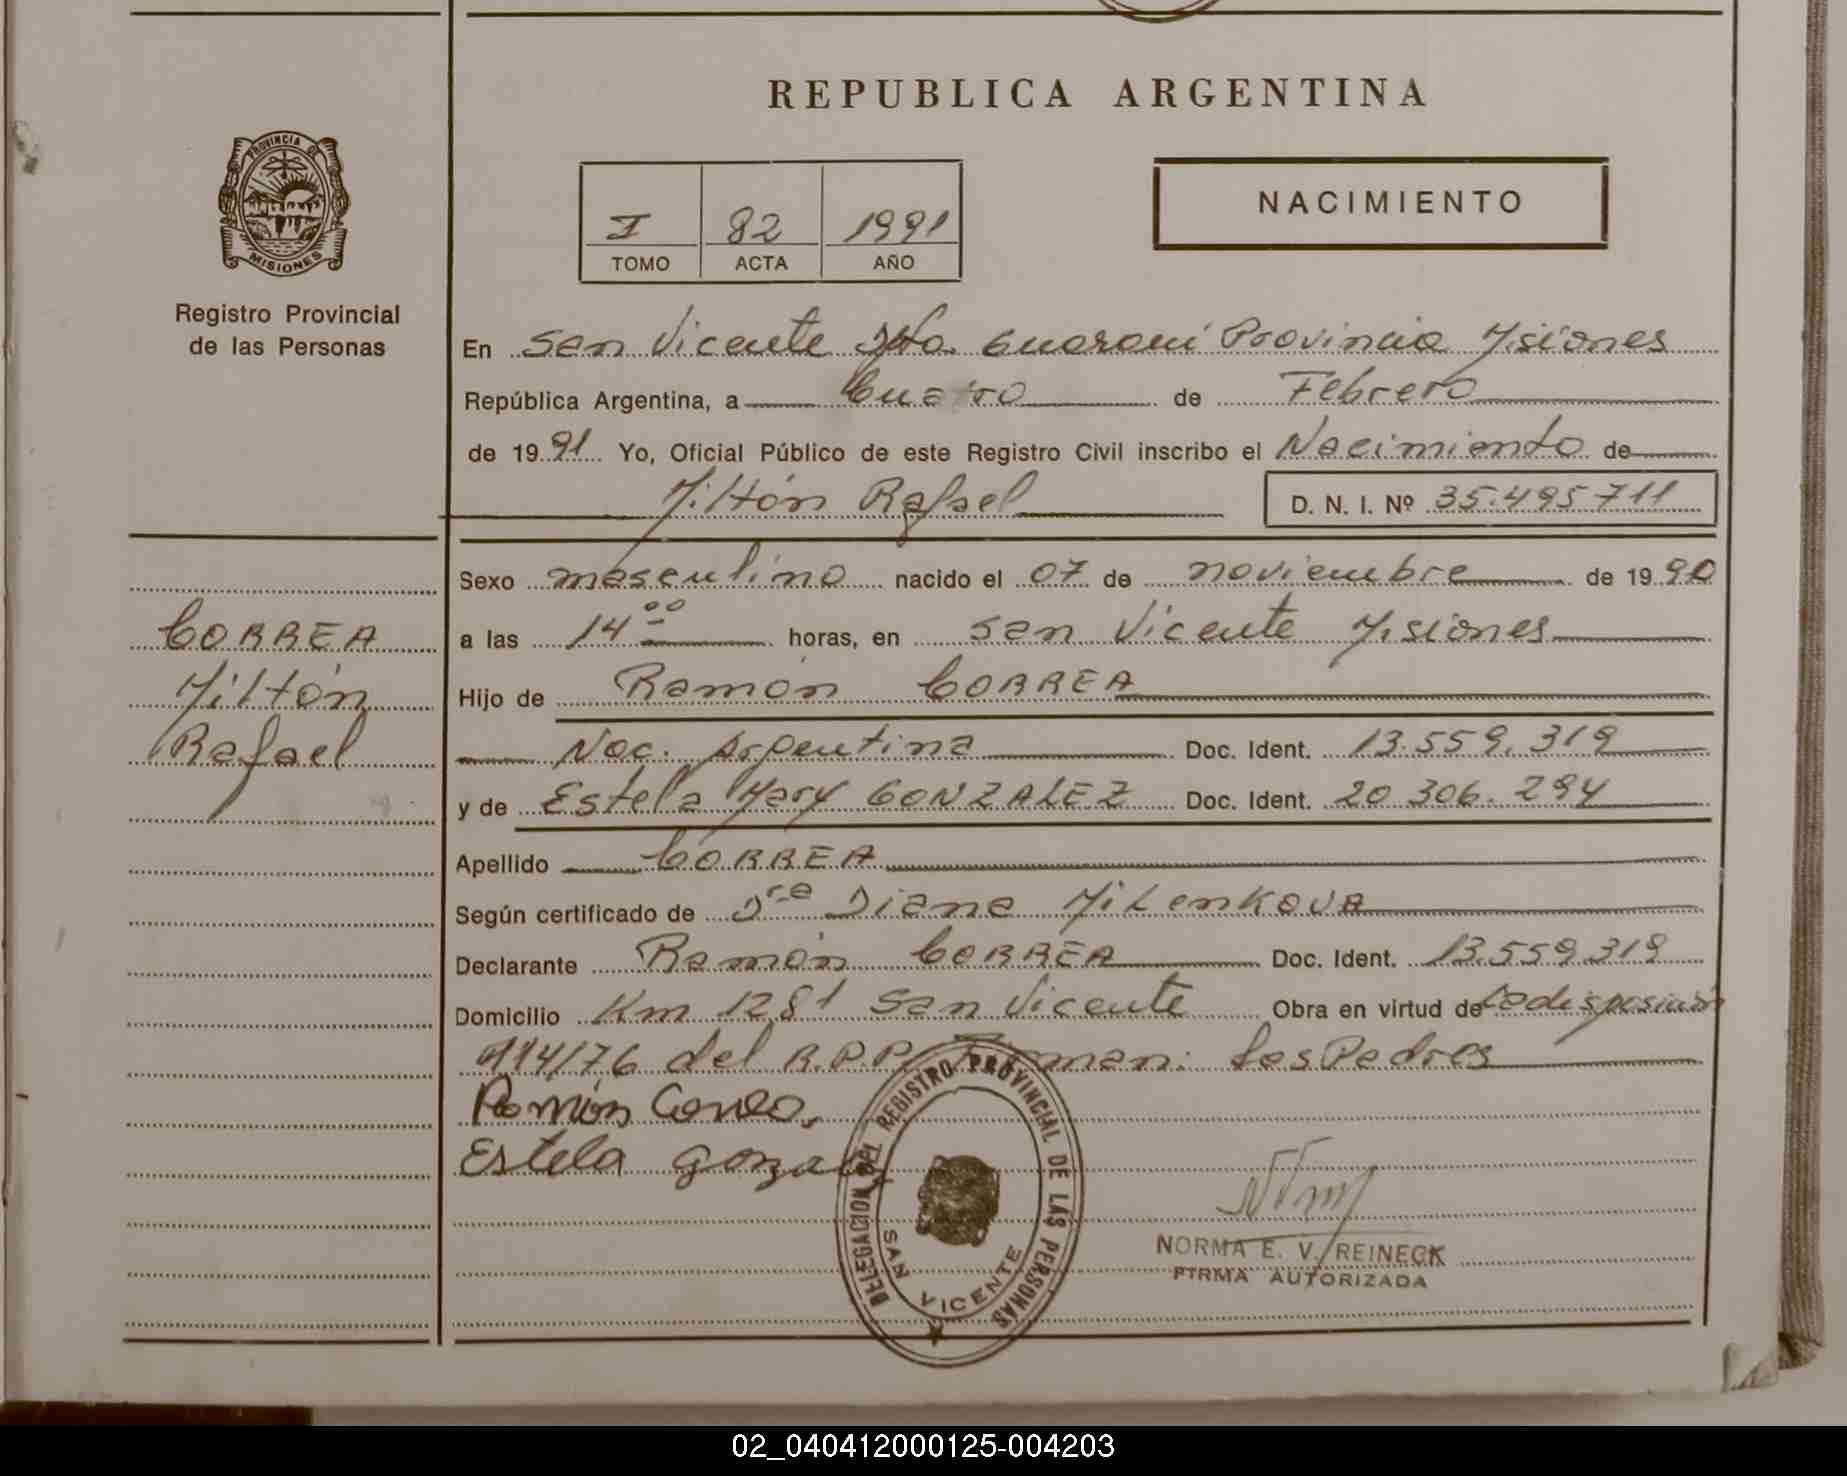 REPUBLICA ARGENTINA
PROVINCIA DE
MISIONES
Registro Provincial
de las Personas
I 82 1991
TOMO ACTA AÑO
NACIMIENTO
En San Vicente Dpto. Guaraní Provincia Misiones
República Argentina, a Cuatro de Febrero
de 1991 Yo, Oficial Público de este Registro Civil inscribo el Nacimiento de
Miltón Rafael D. N. I. Nº 35.495711
Sexo masculino nacido el 07 de noviembre de 1990
a las 14 00 horas, en San Vicente Misiones
Hijo de Ramón CORREA
Nac. Argentina Doc. Ident. 13.559.319
y de Estela Mary GONZALEZ Doc. Ident. 20 306.294
Apellido CORREA
Según certificado de Dra Diana Milenkova
Declarante Ramón CORREA Doc. Ident. 13.559.319
Domicilio Km 1281 San Vicente Obra en virtud de La disposición
114/76 del R.P.P. Firman: Los Padres
Ramón Correa
Estela Gonzalez
CORREA
Miltón
Rafael
DELEGACION DEL REGISTRO PROVINCIAL DE LAS PERSONAS
SAN VICENTE
NORMA E. V. REINECK
FIRMA AUTORIZADA
02_040412000125-004203